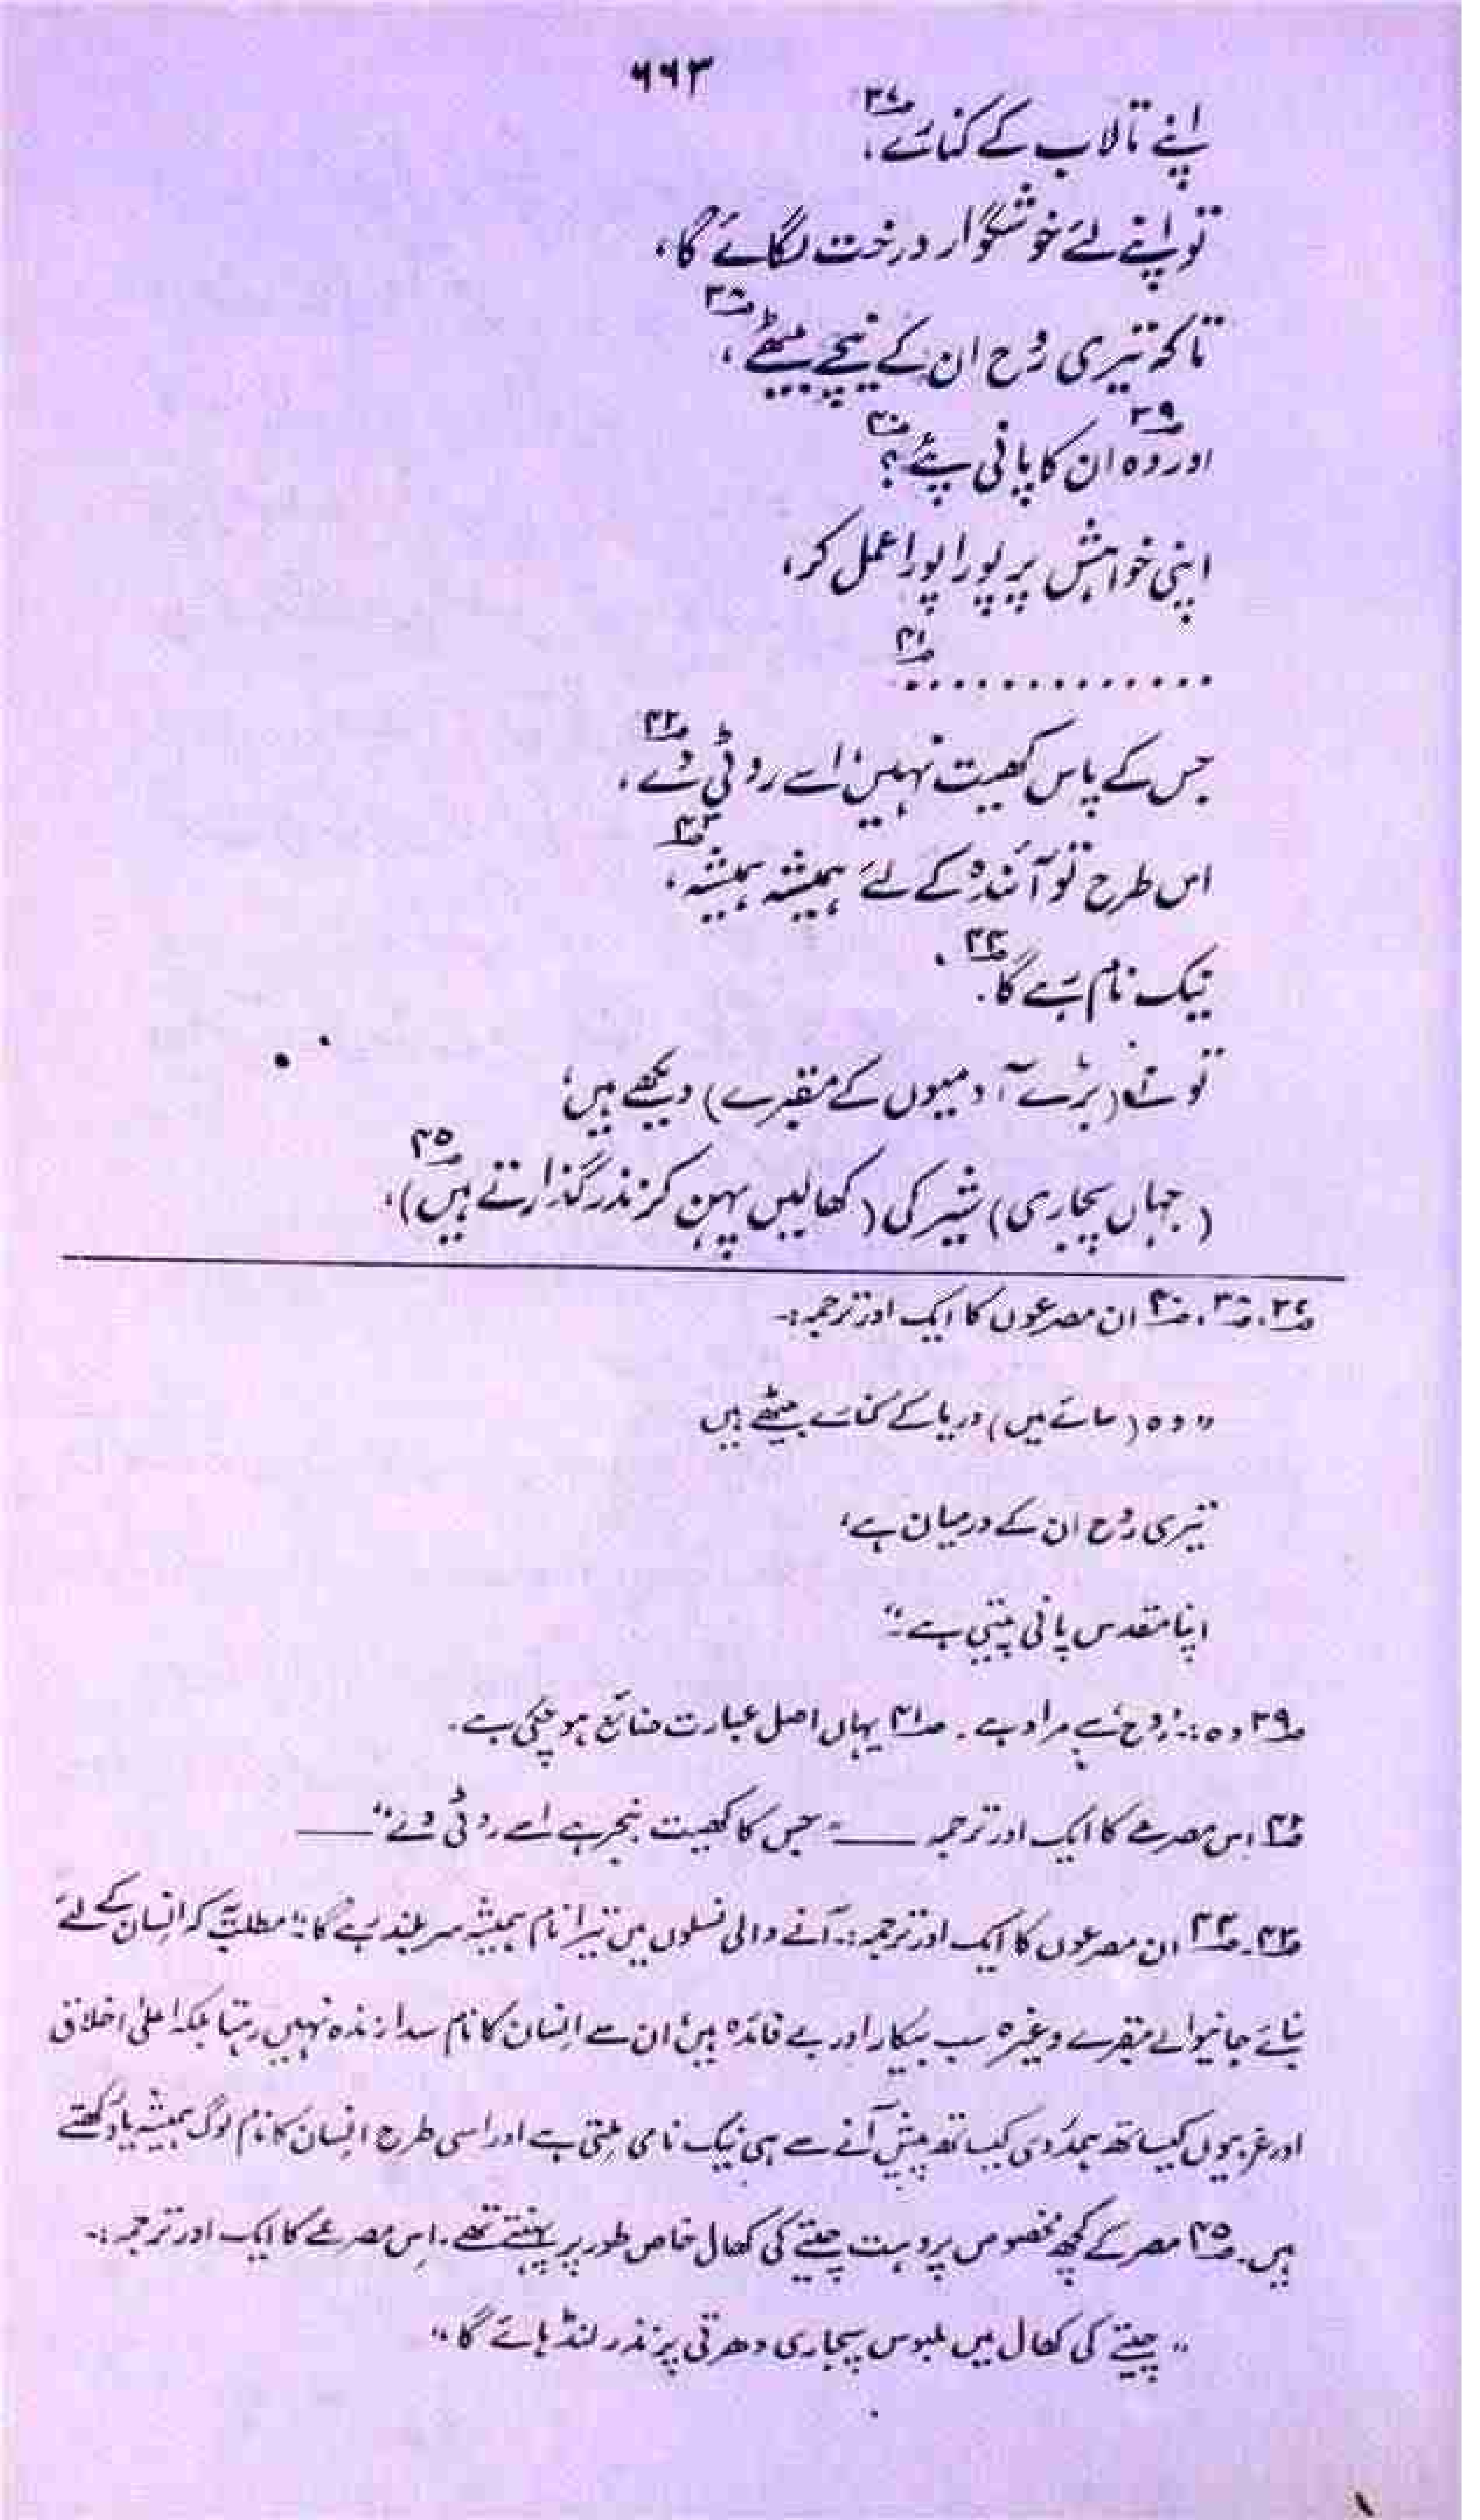 ۶۶۳
اپنے تالاب کے کنارے ۳۷،
تو اپنے لئے خوشگوار درخت لگائے گا،
تاکہ تیری روح ان کے نیچے بیٹھے ۳۸،
اور وہ ۳۹ ان کا پانی پئے ۴۰؟
اپنی خواہش پر پورا پورا عمل کر،
............. ۴۱
جس کے پاس کھیت نہیں، اسے روٹی دے ۴۲،
اس طرح تو آئندہ کے لئے ہمیشہ ہمیشہ ۴۳،
نیک نام رہے گا ۴۴.
تو نے (بڑے آدمیوں کے مقبرے) دیکھے ہیں،
(جہاں پجاری) شیر کی (کھالیں پہن کر نذر گذارتے ہیں) ۴۵،
۳۷، ۳۸، ۴۰ ان مصرعوں کا ایک اور ترجمہ:۔
"وہ (سائے میں) دریا کے کنارے بیٹھے ہیں
تیری روح ان کے درمیان ہے،
اپنا مقدس پانی پیتی ہے۔"
۳۹ وہ:۔ 'روح' سے مراد ہے۔ ۴۱ یہاں اصل عبارت ضائع ہو چکی ہے۔
۴۲ اس مصرعے کا ایک اور ترجمہ —— "جس کا کھیت بنجر ہے اسے روٹی دے" ——
۴۳۔ ۴۴ ان مصرعوں کا ایک اور ترجمہ:۔ آنے والی نسلوں میں تیرا نام ہمیشہ سربلند رہے گا۔" مطلب یہ کہ انسان کے لئے
بنائے جانیوالے مقبرے وغیرہ سب بیکار اور بے فائدہ ہیں، ان سے انسان کا نام سدا زندہ نہیں رہتا بلکہ اعلیٰ اخلاق
اور غریبوں کیساتھ ہمدردی کیساتھ پیش آنے سے ہی نیک نامی ملتی ہے اور اسی طرح انسان کا نام لوگ ہمیشہ یاد رکھتے
ہیں۔ ۴۵ مصر کے کچھ مخصوص پروہت چیتے کی کھال خاص طور پر پہنتے تھے۔ اس مصرعے کا ایک اور ترجمہ:۔
"چیتے کی کھال میں ملبوس پجاری دھرتی پر نذر لنڈہائے گا"